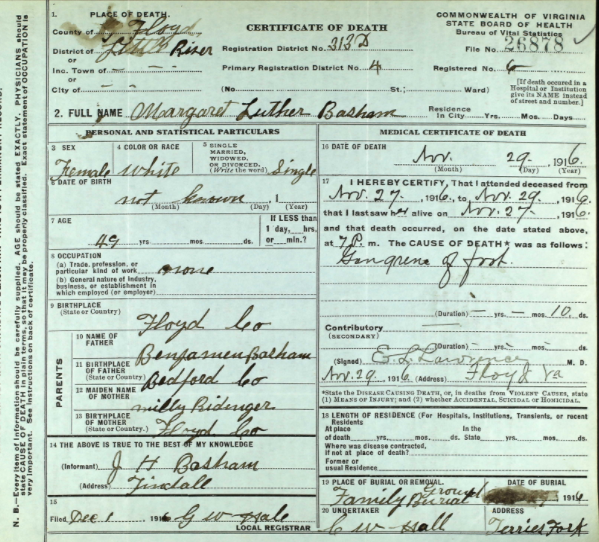 1. PLACE OF DEATH
County of Floyd
District of Little River
or
Inc. Town of — —
or
City of — —
CERTIFICATE OF DEATH
Registration District No. 313D
Primary Registration District No. 4
(No. St.; Ward)
COMMONWEALTH OF VIRGINIA
STATE BOARD OF HEALTH
Bureau of Vital Statistics
File No. 26878
Registered No. 6
[If death occurred in a
Hospital or Institution
give its NAME instead
of street and number.]
2. FULL NAME Margaret Luther Basham
Residence
In City Yrs. Mos. Days
PERSONAL AND STATISTICAL PARTICULARS
3 SEX
Female
4 COLOR OR RACE
White
5 SINGLE
MARRIED,
WIDOWED,
OR DIVORCED.
(Write the word)
Single
6 DATE OF BIRTH
not known
(Month) (Day) (Year)
7 AGE
49 yrs. mos. ds.
If LESS than
1 day, hrs.
or min.?
8 OCCUPATION
(a) Trade, profession, or
particular kind of work none
(b) General nature of industry,
business, or establishment in
which employed (or employer)
9 BIRTHPLACE
(State or Country)
Floyd Co
PARENTS
10 NAME OF
FATHER
Benjamen Basham
11 BIRTHPLACE
OF FATHER
(State or Country)
Bedford Co
12 MAIDEN NAME
OF MOTHER
Milly Ridinger
13 BIRTHPLACE
OF MOTHER
(State or Country)
Floyd Co
14 THE ABOVE IS TRUE TO THE BEST OF MY KNOWLEDGE
(Informant) J H Basham
(Address) Tindall
15
Filed Dec 1 1916 G W Hale
LOCAL REGISTRAR
MEDICAL CERTIFICATE OF DEATH
16 DATE OF DEATH
Nov. 29. , 1916.
(Month) (Day) (Year)
17 I HEREBY CERTIFY, That I attended deceased from
Nov. 27. , 1916, to Nov. 29. , 1916
that I last saw her alive on Nov. 27. , 1916
and that death occurred, on the date stated above,
at 7 P. m. The CAUSE OF DEATH* was as follows:
Gangrene of foot
(Duration) — yrs. — mos. 10. ds.
Contributory
(SECONDARY)
(Duration) yrs. mos. ds.
(Signed) M. D.
Nov. 29. 1916 (Address) Floyd Va
*State the DISEASE CAUSING DEATH, or, in deaths from VIOLENT CAUSES, state
(1) MEANS OF INJURY; and (2) whether ACCIDENTAL, SUICIDAL or HOMICIDAL.
18 LENGTH OF RESIDENCE (For Hospitals, Institutions, Transients, or recent
Residents
At place In the
of death yrs. mos. ds. State yrs. mos. ds.
Where was disease contracted,
if not at place of death?
Former or
usual Residence
19 PLACE OF BURIAL OR REMOVAL
Family Burial Ground
DATE OF BURIAL
1916
20 UNDERTAKER
C W Hall
ADDRESS
Terries Fork
N. B.—Every item of information should be carefully supplied. AGE should be stated EXACTLY. PHYSICIANS should
state CAUSE OF DEATH in plain terms, so that it may be properly classified. Exact statement of OCCUPATION is
very important. See instructions on back of certificate.